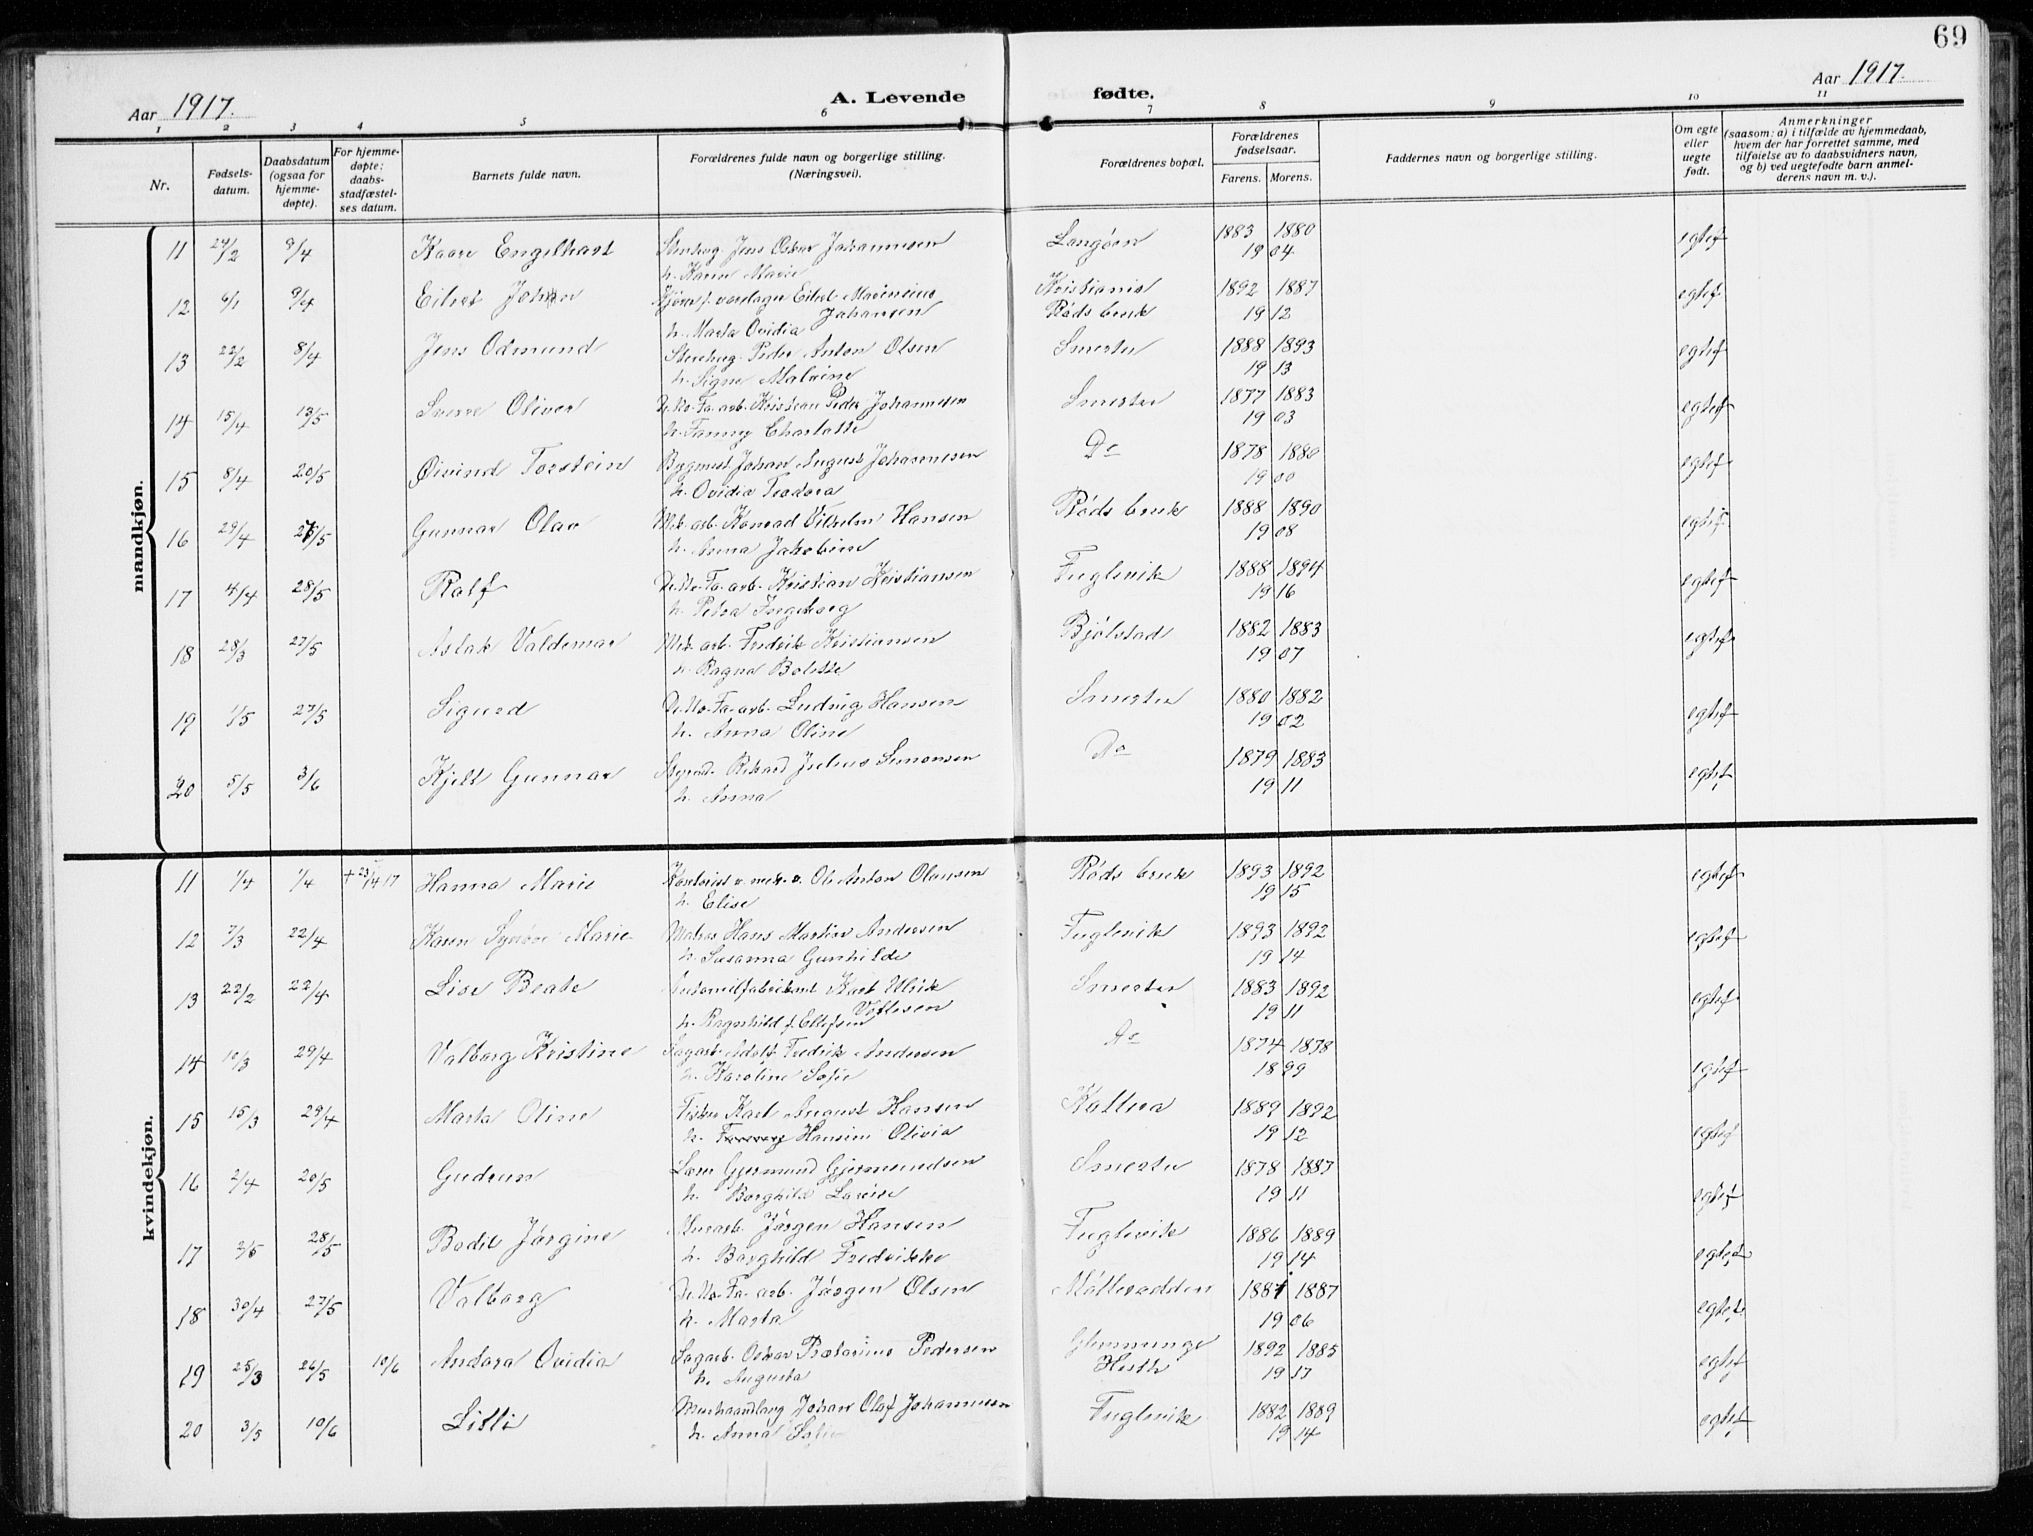 69
Aar 1917.
A. Levende fødte.
Aar 1917.
1 2 3 4 5 6 7 8 9 10 11
Nr.
Fødsels-
datum.
Daabsdatum
(ogsaa for
hjemme-
døpte).
For hjemme-
døpte:
daabs-
stadfæstel-
ses datum.
Barnets fulde navn.
Forældrenes fulde navn og borgerlige stilling.
(Næringsvei).
Forældrenes bopæl.
Forældrenes
fødselsaar.
Farens. Morens.
Faddernes navn og borgerlige stilling.
Om egte
eller
uegte
født.
Anmerkninger
(saasom: a) i tilfælde av hjemmedaab,
hvem der har forrettet samme, med
tilføielse av to daabsvidners navn,
og b) ved uegtefødte barn anmel-
derens navn m. v.).
mandkjøn.
11 24/2 9/4 Kaare Engelhart Stenhug. Jens Oskar Johannesen Langøen 1883 1880 egtef
h. Karen Marie 19 04
12 6/1 9/4 Eilert Johan Kjøre f. vardager Eilert Marensius Kristiania 1892 1887 egtef
Johansen Røds bruk 19 12
h. Marta Ovidia
13 22/2 8/4 Jens Odmund Stenhug. Peder Anton Olsen Smertu 1888 1893 egtef
h. Signe Malvine 19 13
14 15/4 13/5 Sverre Oliver De No. Fa. arb. Kristian Peder Johannesen Smertu 1877 1883 egtef
h. Fanny Charlotte 19 03
15 8/4 20/5 Øivind Torstein Bygmest. Johan August Johannesen Do 1878 1880 egtef
h. Ovidia Teodora 19 00
16 29/4 /5 Gunnar Olav Mek. arb. Konrad Vilhelm Hansen Røds bruk 1888 1890 egtef
h. Anna Jakobine 19 08
17 4/4 28/5 Rolf De No. Fa. arb. Kristian Kristiansen Fuglevik 1888 1894 egtef
h. Petra Ingeborg 19 16
18 28/3 27/5 Aslak Valdemar Mek. arb. Fredrik Kristiansen Bjølstad 1882 1883 egtef
h. Ragna Bolette 19 07
19 1/5 27/5 Sigurd De No. Fa. arb. Ludvig Hansen Smertu 1880 1882 egtef
h. Anna Oline 19 02
20 5/5 3/6 Kjell Gunnar Rikard Julius Simonsen Do 1879 1883 egtef
h. Anna 19 11
kvindekjøn.
11 1/4 1/4 † 23/4 17 Hanna Marie Kontorist v. mek. v. Ole Anton Olausen Røds bruk 1893 1892 egtef
h. Elise 19 15
12 7/3 22/4 Karen Synøve Marie Matros Hans Martin Andersen Fuglevik 1893 1892 egtef
h. Susanna Gunhilde 19 14
13 22/2 22/4 Lise Beate Karl Ulrik Smertu 1883 1892 egtef
Vøllesen
h. Ragnhild f. Ellefsen 19 11
14 10/3 29/4 Valborg Kristine Sagarb. Adolf Fredrik Andersen Do 1874 1878 egtef
h. Karoline Sofie 18 99
15 15/3 29/4 Marta Oline Fisker Karl August Hansen Kallera 1889 1892 egtef
h. Hansine Olivia 19 12
16 2/4 20/5 Gudrun Lærer Gjermund Gjermundsen Smertu 1878 1887 egtef
h. Borghild Lovise 19 11
17 3/5 28/5 Bodil Jørgine Murarb. Jørgen Hansen Fuglevik 1886 1889 egtef
h. Borghild Fredrikke 19 14
18 30/4 27/5 Valborg De No. Fa. arb. Jørgen Olsen Møllerodden 1881 1887 egtef
h. Marta 19 06
19 25/3 26/5 10/6 Andora Ovidia Sagarb. Oskar Pedersen Glemminge 1892 1885 egtef
h. Augusta 19 17
20 3/5 10/6 Lilli Murhaandlang Johan Olaf Johannesen Fuglevik 1882 1889 egtef
h. Anna Sofie 19 14